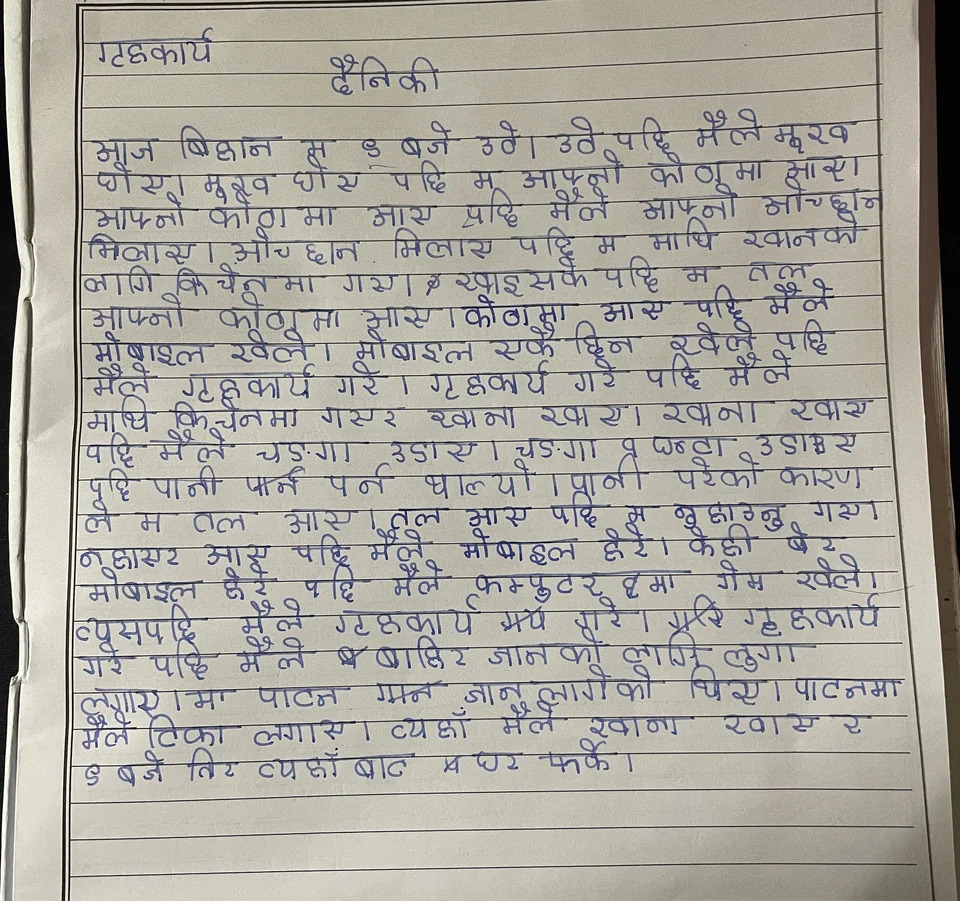 गृहकार्य
दैनिकी
आज बिहान म ७ बजे उठे। उठे पछि मैले मुख
धोए। मुख धोए पछि म आफ्नो कोठामा आए।
आफ्नो कोठामा आए पछि मैले आफ्नो ओच्छ्यान
मिलाए। ओच्छ्यान मिलाए पछि म माथि खानको
लागि किचेनमा गए। खाइसके पछि म तल
आफ्नो कोठामा आए। कोठामा आए पछि मैले
मोबाइल खेले। मोबाइल एकै छिन खेले पछि
मैले गृहकार्य गरे। गृहकार्य गरे पछि मैले
माथि किचेनमा गएर खाना खाए। खाना खाए
पछि मैले चङ्गा उडाए। चङ्गा १ घण्टा उडाए
पछि पानी पर्न थाल्यो। पानी परेको कारण
ले म तल आए। तल आए पछि म नुहाउनु गए।
नुहाएर आए पछि मैले मोबाइल हेरे। केही बेर
मोबाइल हेरे पछि मैले कम्प्युटर मा गेम खेले।
त्यसपछि मैले गृहकार्य गरे। गृहकार्य
गरे पछि मैले बाहिर जानको लागि लुगा
लगाए। मा पाटन जान लागेको थिए। पाटनमा
मैले टिका लगाए। त्यहाँ मैले खाना खाए र
७ बजे तिर त्यहाँ बाट घर फर्के।